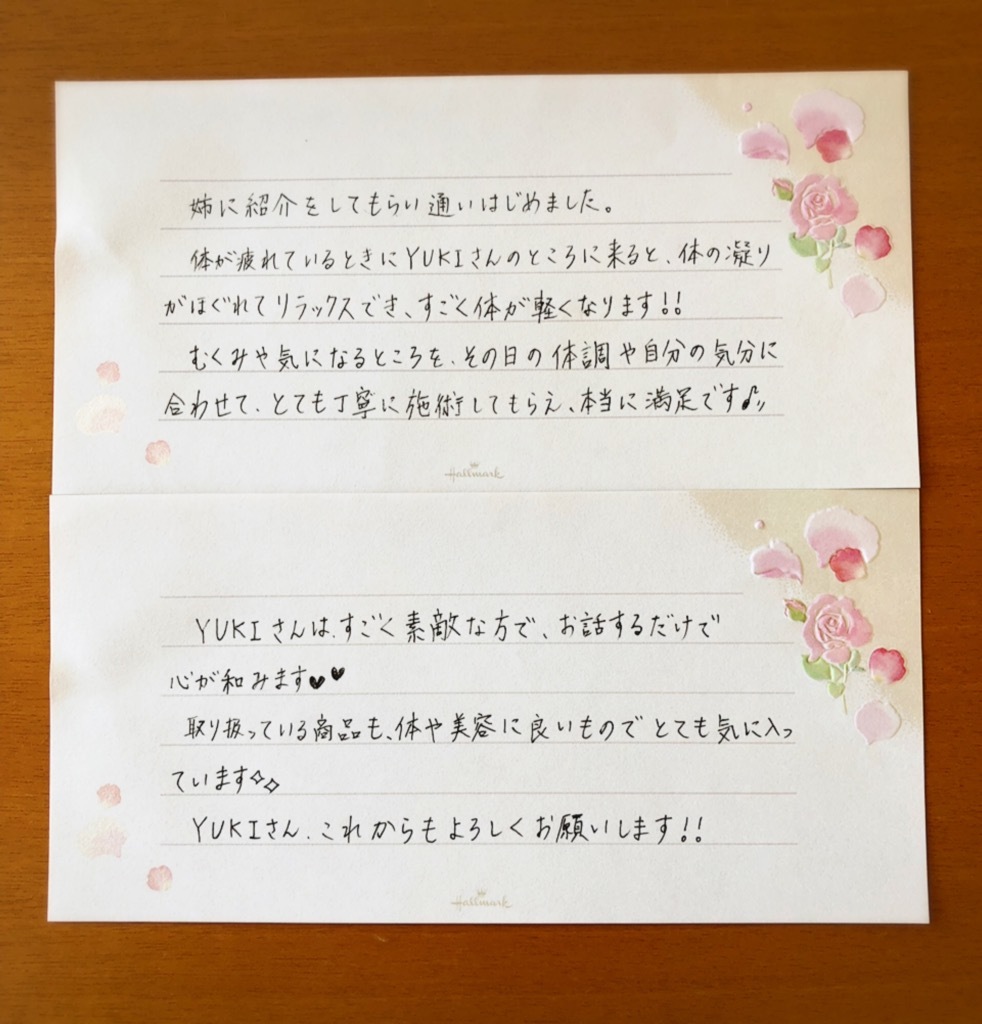 姉に紹介をしてもらい通いはじめました。
体が疲れているときにYUKIさんのところに来ると、体の凝り
がほぐれてリラックスでき、すごく体が軽くなります!!
むくみや気になるところを、その日の体調や自分の気分に
合わせて、とても丁寧に施術してもらえ、本当に満足です♪〃
Hallmark
YUKIさんは、すごく素敵な方で、お話するだけで
心が和みます♥♥
取り扱っている商品も、体や美容に良いものでとても気に入っ
ています✧✧
YUKIさん、これからもよろしくお願いします!!
Hallmark